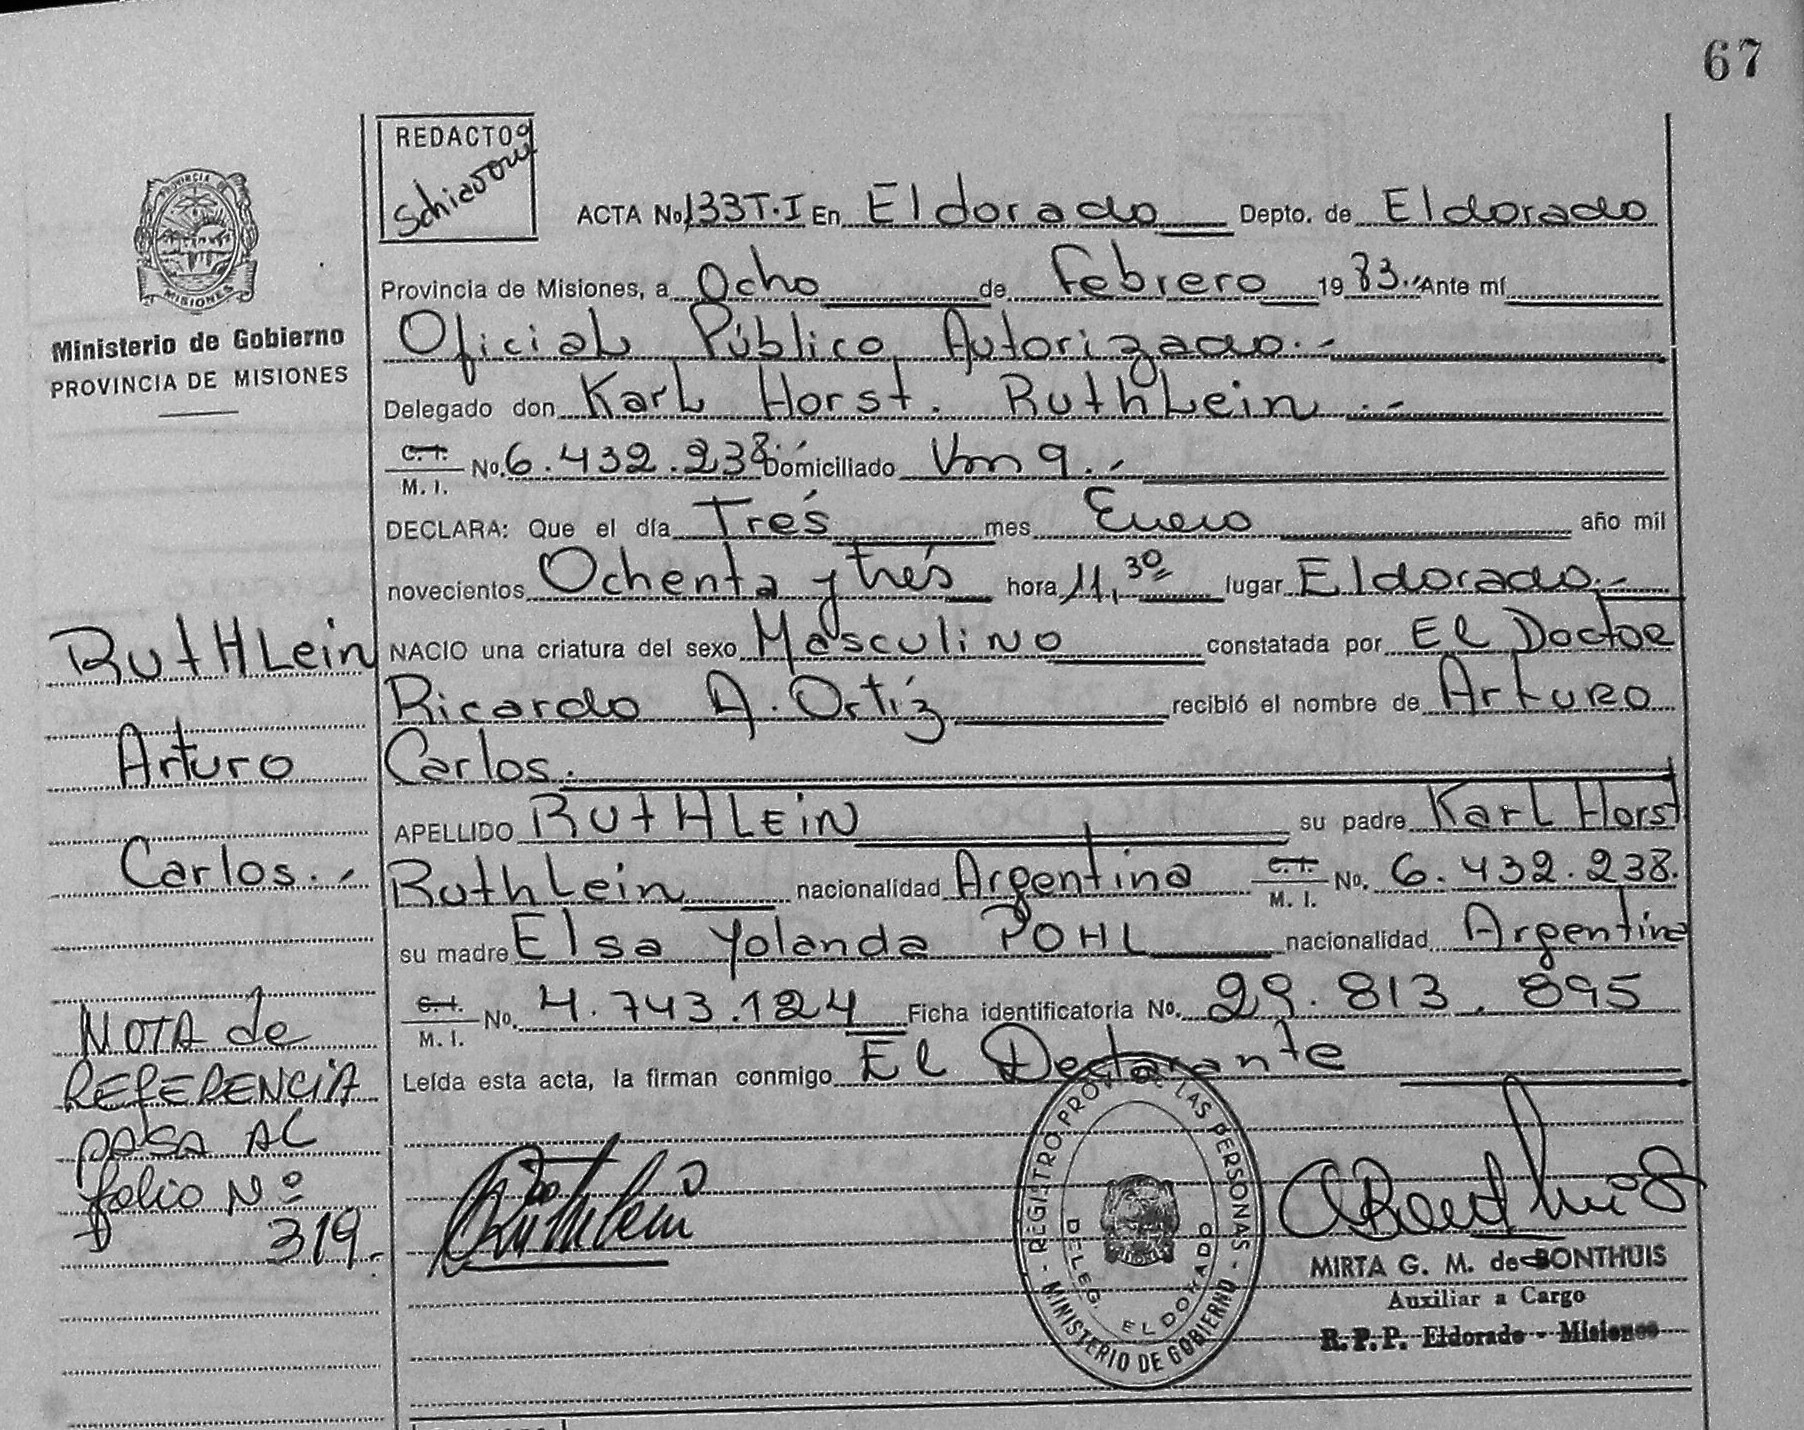 67
REDACTO
Schiavoni
PROVINCIA DE
MISIONES
Ministerio de Gobierno
PROVINCIA DE MISIONES
ACTA No 133T.I En Eldorado Depto. de Eldorado
Provincia de Misiones, a Ocho de Febrero 1983.- Ante mí
Oficial Público Autorizado.-
Delegado don Karl Horst. Ruthlein.-
C. I. M. I. No. 6.432.238 Domiciliado Km 9.-
DECLARA: Que el día Trés mes Enero año mil
novecientos Ochenta y trés hora 11,30 lugar Eldorado.-
NACIO una criatura del sexo Masculino constatada por El Doctor
Ricardo A. Ortíz recibió el nombre de Arturo
Carlos.
APELLIDO RUTHLEIN su padre Karl Horst
Ruthlein nacionalidad Argentina C. I. M. I. No. 6.432.238.
su madre Elsa Yolanda POHL nacionalidad Argentina
C. I. M. I. No. 4.743.124 Ficha identificatoria No. 29.813.895
Leída esta acta, la firman conmigo El Declarante
RuthLein
Arturo
Carlos.-
NOTA de
REFERENCIA
PASA AL
folio Nº
319.-
Ruthlein
REGISTRO PROV. DE LAS PERSONAS - MINISTERIO DE GOBIERNO -
DELEG. ELDORADO
MIRTA G. M. de BONTHUIS
Auxiliar a Cargo
R. P. P. Eldorado - Misiones